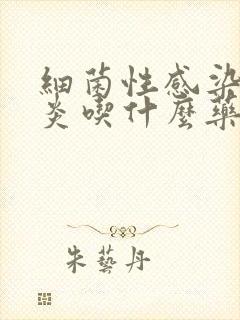 細菌性感染
炎喫什麼藥
朱藝丹